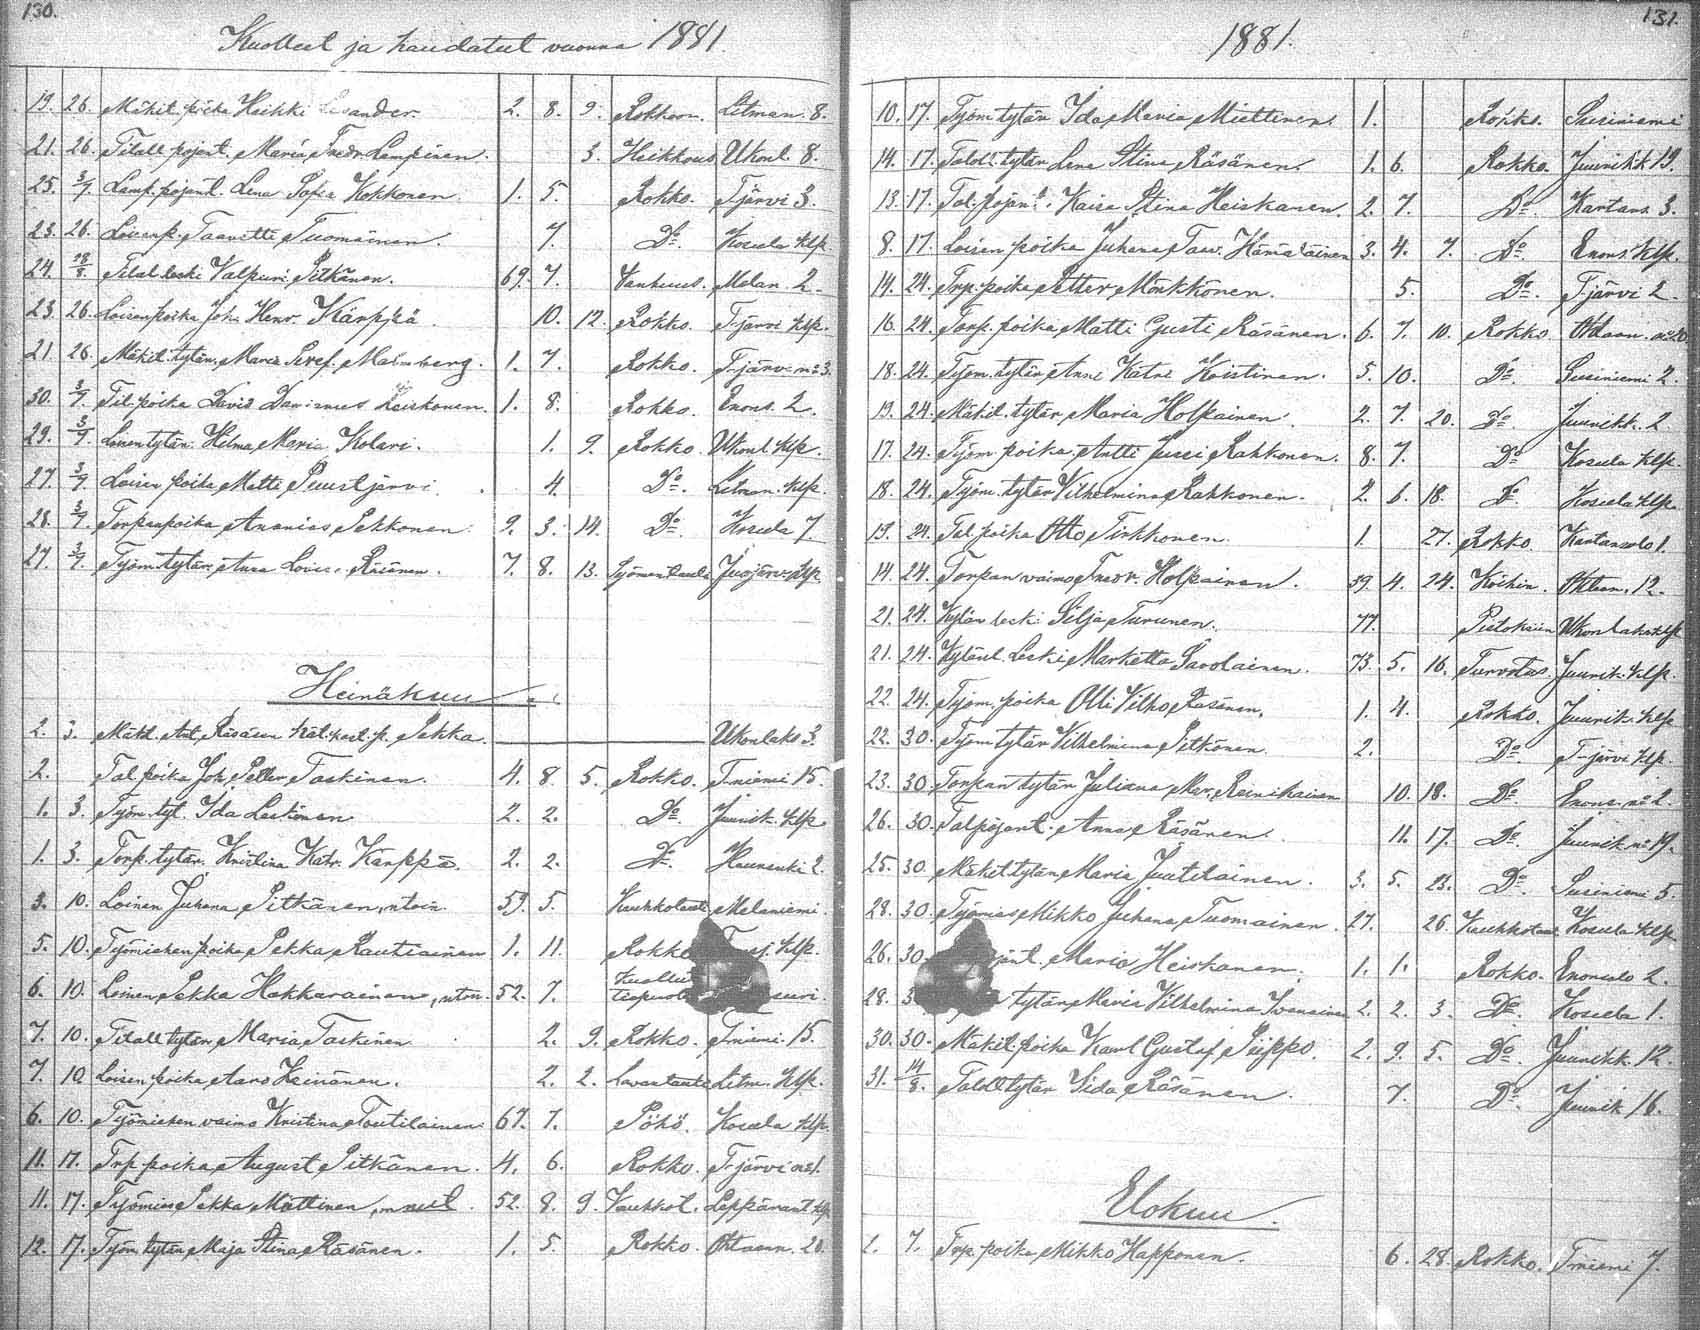 130.
Kuolleet ja haudatut vuonna 1881.
19. 26. Mäkit. poika Heikki 2. 8. 9. Rokkoon. Litman. 8.
21. 26. Titall. pojant. Maria Fredr. Lampinen. 3. Ukonl. 8.
25. 3/7. Lamp. pojant. Lena Sofia Kokkonen. 1. 5. Rokko. T-järvi 3.
23. 26. Loisenp. Taavetti Tuomainen. 7. Do. Kosula klp.
24. Tital. leski Valpuri Pitkänen. 69. 7. Vanhuus. Melan. 2.
23. 26. Loisen poika Joh. Henr. Kärppä. 10. 12. Rokko. T-järvi klp.
21. 26. Mäkit. tytär. Maria Malmberg. 1. 7. Rokko. T-järvi no 3.
30. 3/7. Til. poika David 1. 8. Rokko. Enons. 2.
29. 3/7. Loisen tytär. Helma Maria Kolari. 1. 9. Rokko. Ukonl. klp.
27. 3/7. Loisen poika Matti Puustjärvi. 4. Do. Litman. klp.
28. 3/7. Torpan poika Ananias Pekkonen. 9. 3. 14. Do. Kosula 7.
27. 3/7. Työm. tytär. Anna Räsänen. 7. 8. 13. klp.
Heinäkuu
2. 3. Mäkit. Ant. Räsäsen p. Pekka. Ukonlaks 3.
2. Tal. poika Joh. Petter Taskinen. 4. 8. 5. Rokko. T-niemi 15.
1. 3. Työm. tyt. Ida 2. 2. Do. Juurik. klp.
1. 3. Torp. tytär. Kristina Katr. Karppa. 2. 2. Do. 2.
3. 10. Loinen Juhana Pitkänen, 59. 5. Keuhkotauti Melaniemi.
5. 10. Työmiehen poika Pekka Rautiainen. 1. 11. Rokko klp.
6. 10. Loinen Pekka Hakkarainen, 52. 7. Kuollut
7. 10. Titall. tytär Maria Taskinen 2. 9. Rokko. T-niemi. 15.
7. 10. Loisen poika Aaro Heinänen. 2. 2. Litm. klp.
6. 10. Työmiehen vaimo Kristina Toutilainen. 67. 7. Pöhö. Kosula klp.
11. 17. Trp. poika August Pitkänen. 4. 6. Rokko. T-järvi no 1.
11. 17. Työmies Pekka Miettinen, 52. 8. 9. Keuhkot. klp.
12. 17. Työm. tytär Maja Stina Räsänen. 1. 5. Rokko. Ohtaan. 20.
131.
1881.
10. 17. Työm. tytär Ida Maria Miettinen. 1. Rokko. Susiniemi
14. 17. Talol. tytär Lena Stina Räsänen. 1. 6. Rokko. Juurikk. 19.
13. 17. Tal. pojan t. Kaisa Stina Heiskanen. 2. 7. Do. Kartans. 3.
8. 17. Loisen poika Juhana Taav. Hämäläinen 3. 4. 7. Do. Enons. klp.
14. 24. Trp. poika Petter Mönkkönen. 5. Do. T-järvi 2.
16. 24. Torp. poika Matti Gusti Räsänen. 6. 7. 10. Rokko
18. 24. Työm. tytär Anni Katri Koistinen. 5. 10. Do. Susiniemi 2.
19. 24. Mäkit. tytär Maria Holpainen. 2. 7. 20. Do. Juurikk. 2.
17. 24. Työm. poika Antti Jussi Rahkonen. 8. 7. Do. Kosula klp.
18. 24. Työm. tytär Vilhelmina Rahkonen. 2. 6. 18. Do. Kosula klp.
19. 24. Tal. poika Otto Pirhonen. 1. 27. Rokko Kartansalo 1.
14. 24. Torpan vaimo Fredr. Holpainen. 39. 4. 24. Ohtaan. 12.
21. 24. leski Silja Turunen. 77. Ukonlaks klp
21. 24. Leski Marketta Savolainen. 73. 5. 16. Turvotus. Juurik. klp.
22. 24. Työm. poika Olli Vilho Räsänen. 1. 4. Rokko. Juurik. klp.
22. 30. Työm. tytär Vilhelmina Pitkänen. 2. Do. T-järvi klp.
23. 30. Torpan tytär Juliana Mar. Reinikainen 10. 18. Do. Enons. no 2.
26. 30. Tal. pojant. Anna Räsänen. 11. 17. Do. Juurik. no 19.
25. 30. Mäkit. tytär Maria Juutilainen. 3. 5. 23. Do. Susiniemi 5.
28. 30. Työmies Mikko Juhana Tuomainen. 27. 26. Keuhkotaut. Kosula klp.
26. 30. Maria Heiskanen. 1. 1. Rokko. Enonsalo 2.
28. tytär Maria Vilhelmina 2. 2. 3. Do. Kosula 1.
30. 30. Mäkit. poika Kaarl Gustaf Piippo. 2. 9. 5. Do. Juurikk. 12.
31. 14/8. Taloll. tytär Iida Räsänen. 7. Do. Juurik 16.
Elokuu.
2. 7. Trp. poika Mikko Happonen. 6. 28. Rokko. T-niemi 7.